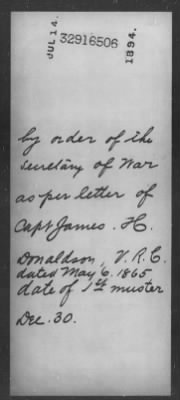 JUL 14.
32916506
1894.
by order of the
Secretary of War
as per letter of
Capt James. H.
Donaldson, V.R.C.
dated May 6. 1865
date of 1st muster
Dec. 30.